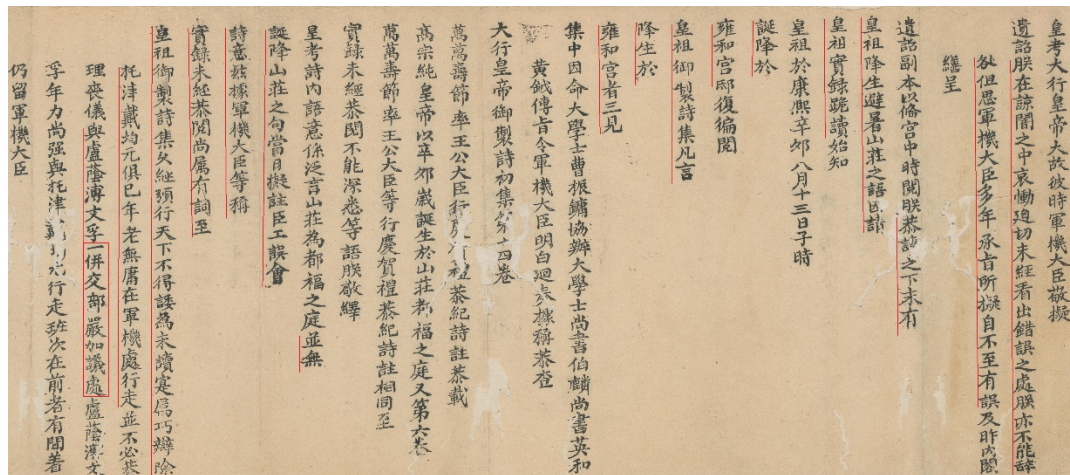 皇考大行皇帝大故彼時軍機大臣敬擬
遺詔朕在諒闇之中哀慟迫切未經看出錯誤之處朕亦不能辭
咎但思軍機大臣多年承旨所擬自不至有誤及昨內閣
繕呈
遺詔副本以備宮中時閱朕恭讀之下末有
皇祖降生避暑山莊之語因請
皇祖實録跪讀始知
皇祖於康熙辛夘八月十三日子時
誕降於
雍和宮邸復徧閱
皇祖御製詩集凡言
降生於
雍和宮者三見
集中因命大學士曹振鏞協辦大學士尚書伯麟尚書英和
黃鉞傳旨令軍機大臣明白迴奏據稱恭查
大行皇帝御製詩初集第十四卷
萬萬壽節率王公大臣行慶賀禮恭紀詩註恭載
高宗純皇帝以辛夘歲誕生於山莊都福之庭又第六卷
萬萬壽節率王公大臣等行慶賀禮恭紀詩註相同至
實録未經恭閱不能深悉等語朕敬繹
皇考詩內語意係泛言山莊為都福之庭並無
誕降山莊之句當日擬註臣工誤會
詩意茲據軍機大臣等稱
實録未經恭閱尚屬有詞至
皇祖御製詩集久經頒行天下不得諉為未讀寔屬巧辯除
托津戴均元俱已年老無庸在軍機處行走並不必恭
理喪儀與盧蔭溥文孚一併交部嚴加議處盧蔭溥文
孚年力尚强與托津戴均元行走班次在前者有間着
仍留軍機大臣